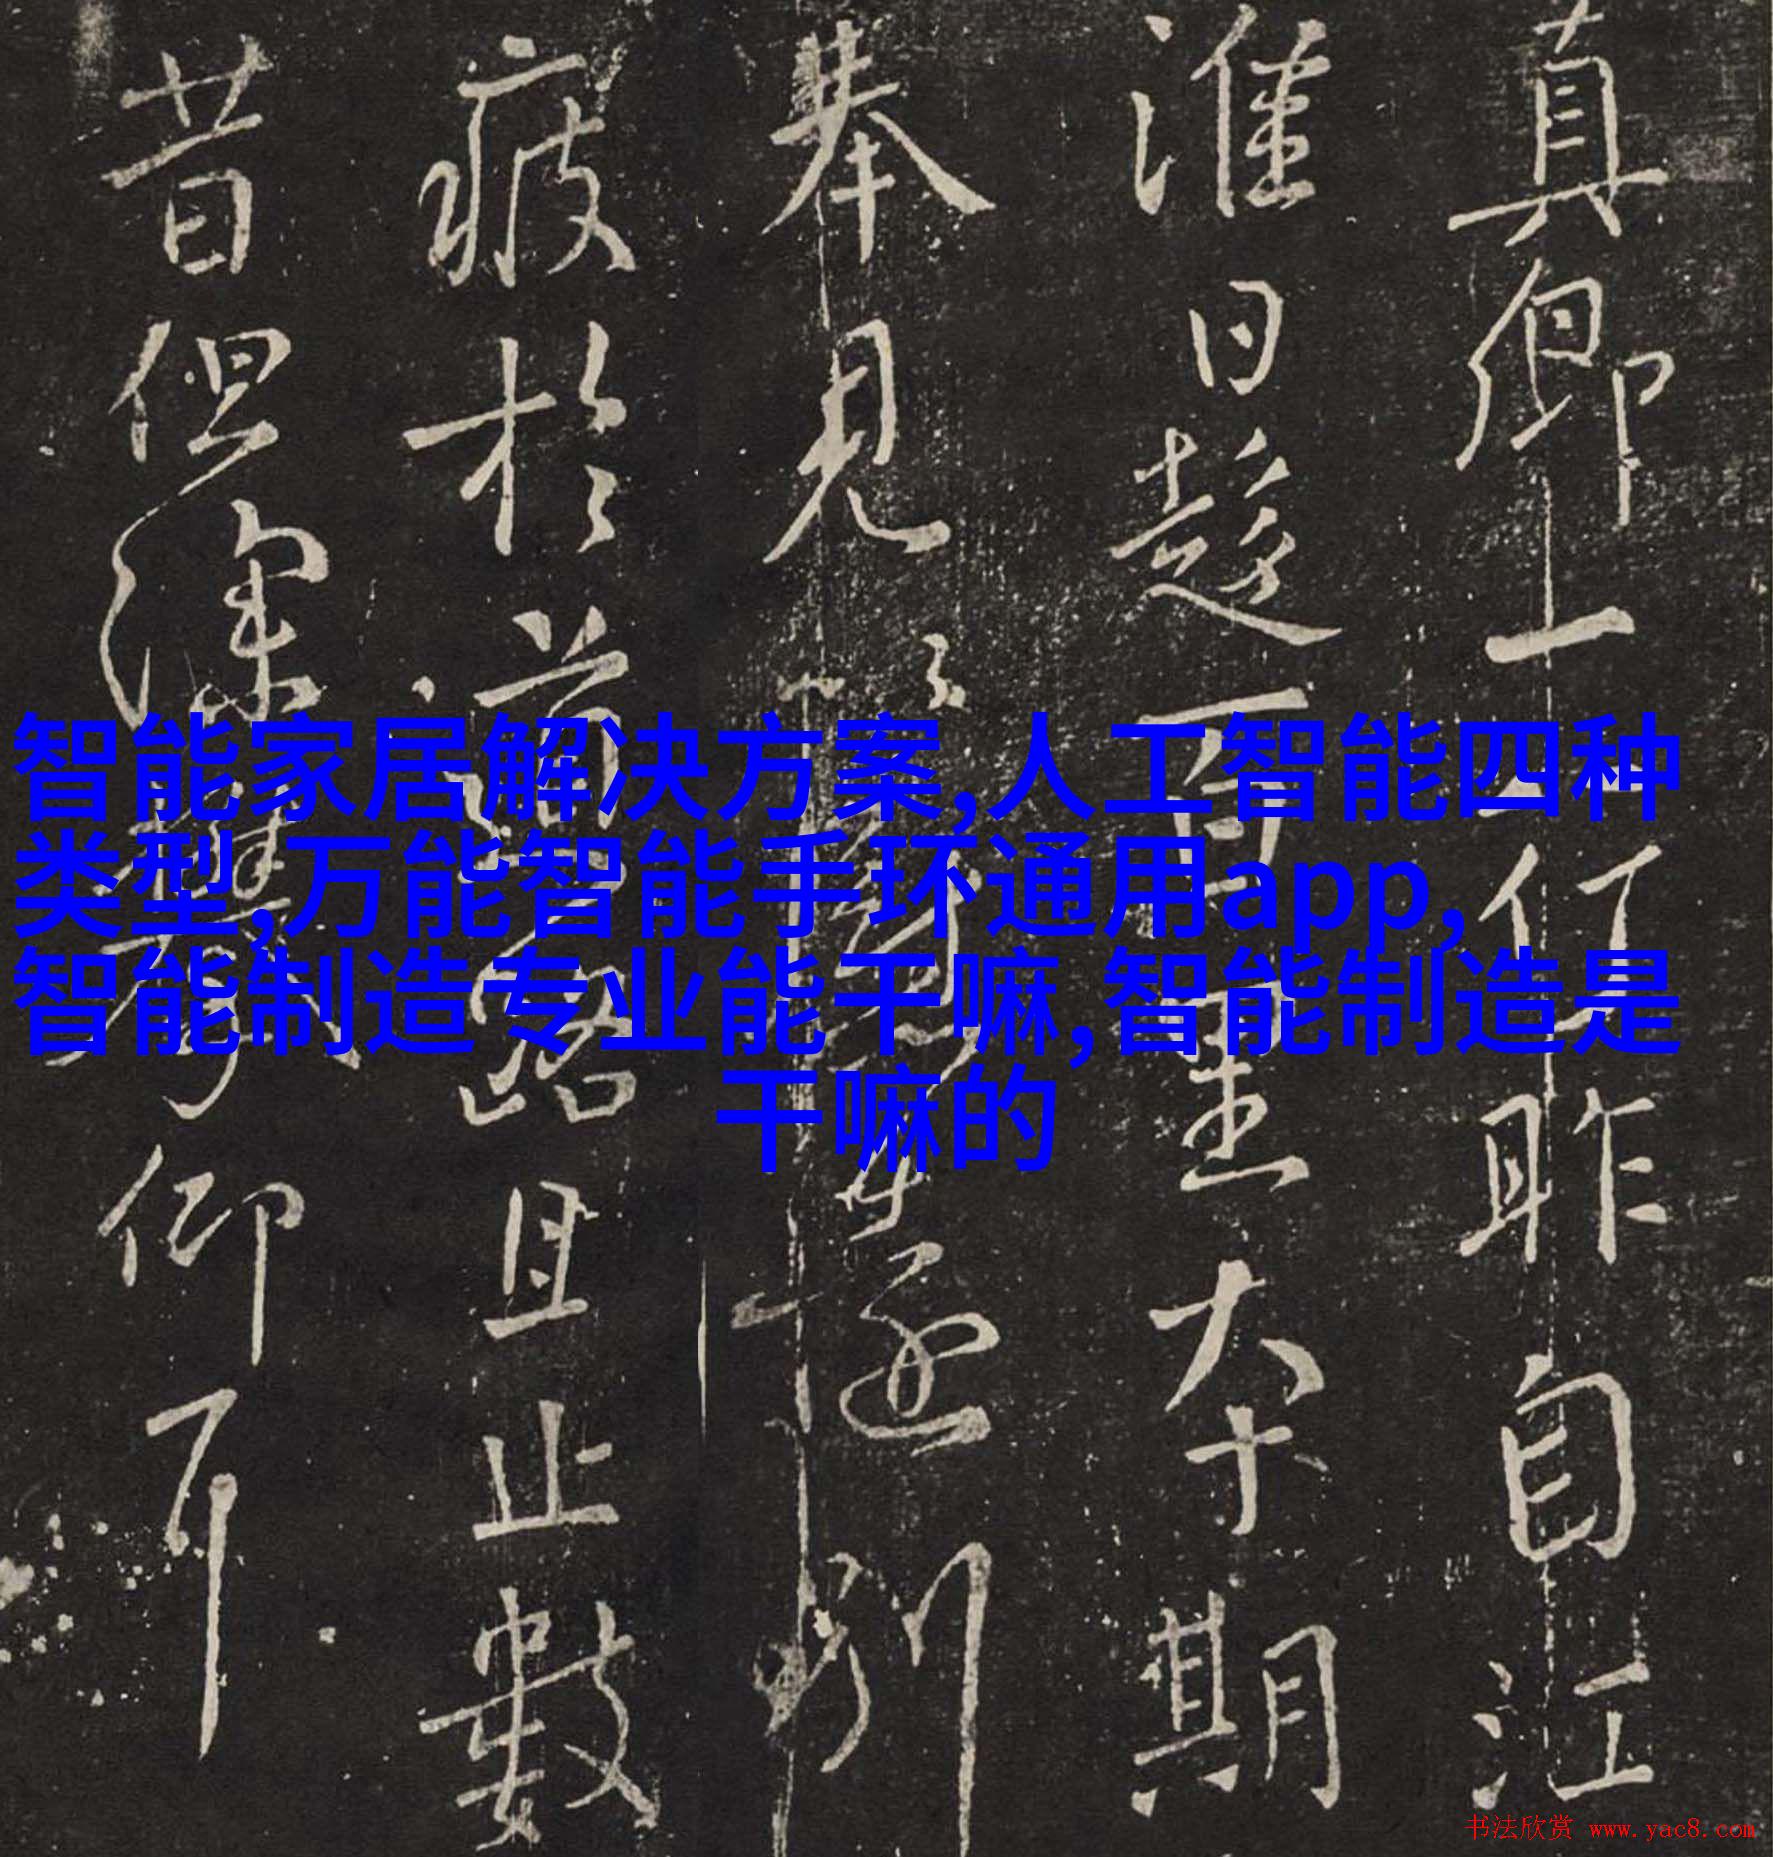 真卿一行昨自江
淮日趨百里本期
奉見遽別
疲於道路且止數
昔但深仰耳
智能家居解决方案,人工智能四种
类型,万能智能手环通用app,
智能制造专业能干嘛,智能制造是
干嘛的
书法欣赏 www.yac8.com